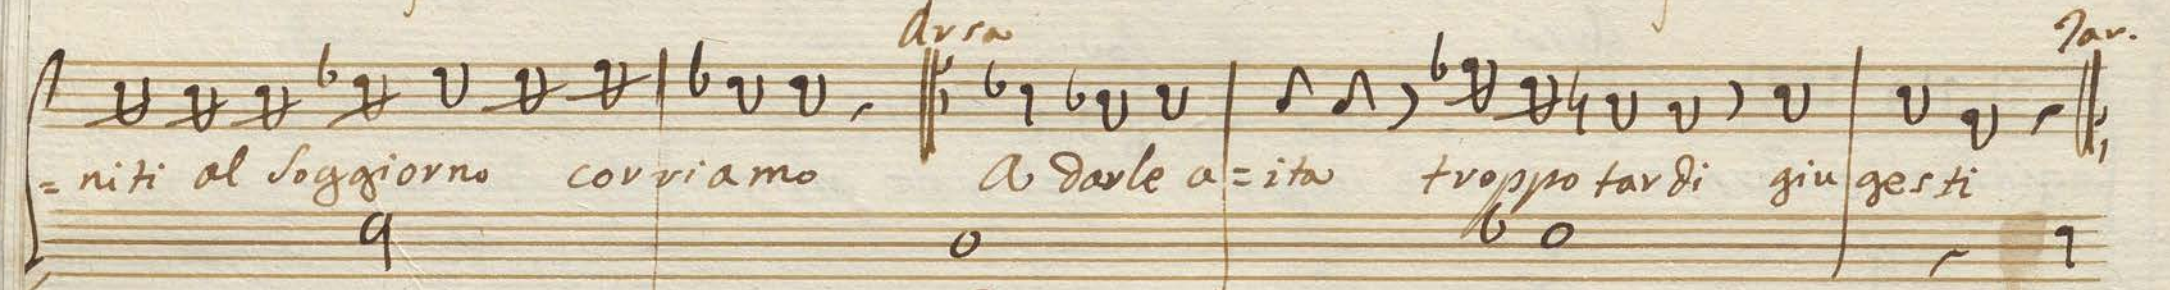 Arsa Tar.
=niti al soggiorno corriamo A darle a=ita troppo tardi giugesti